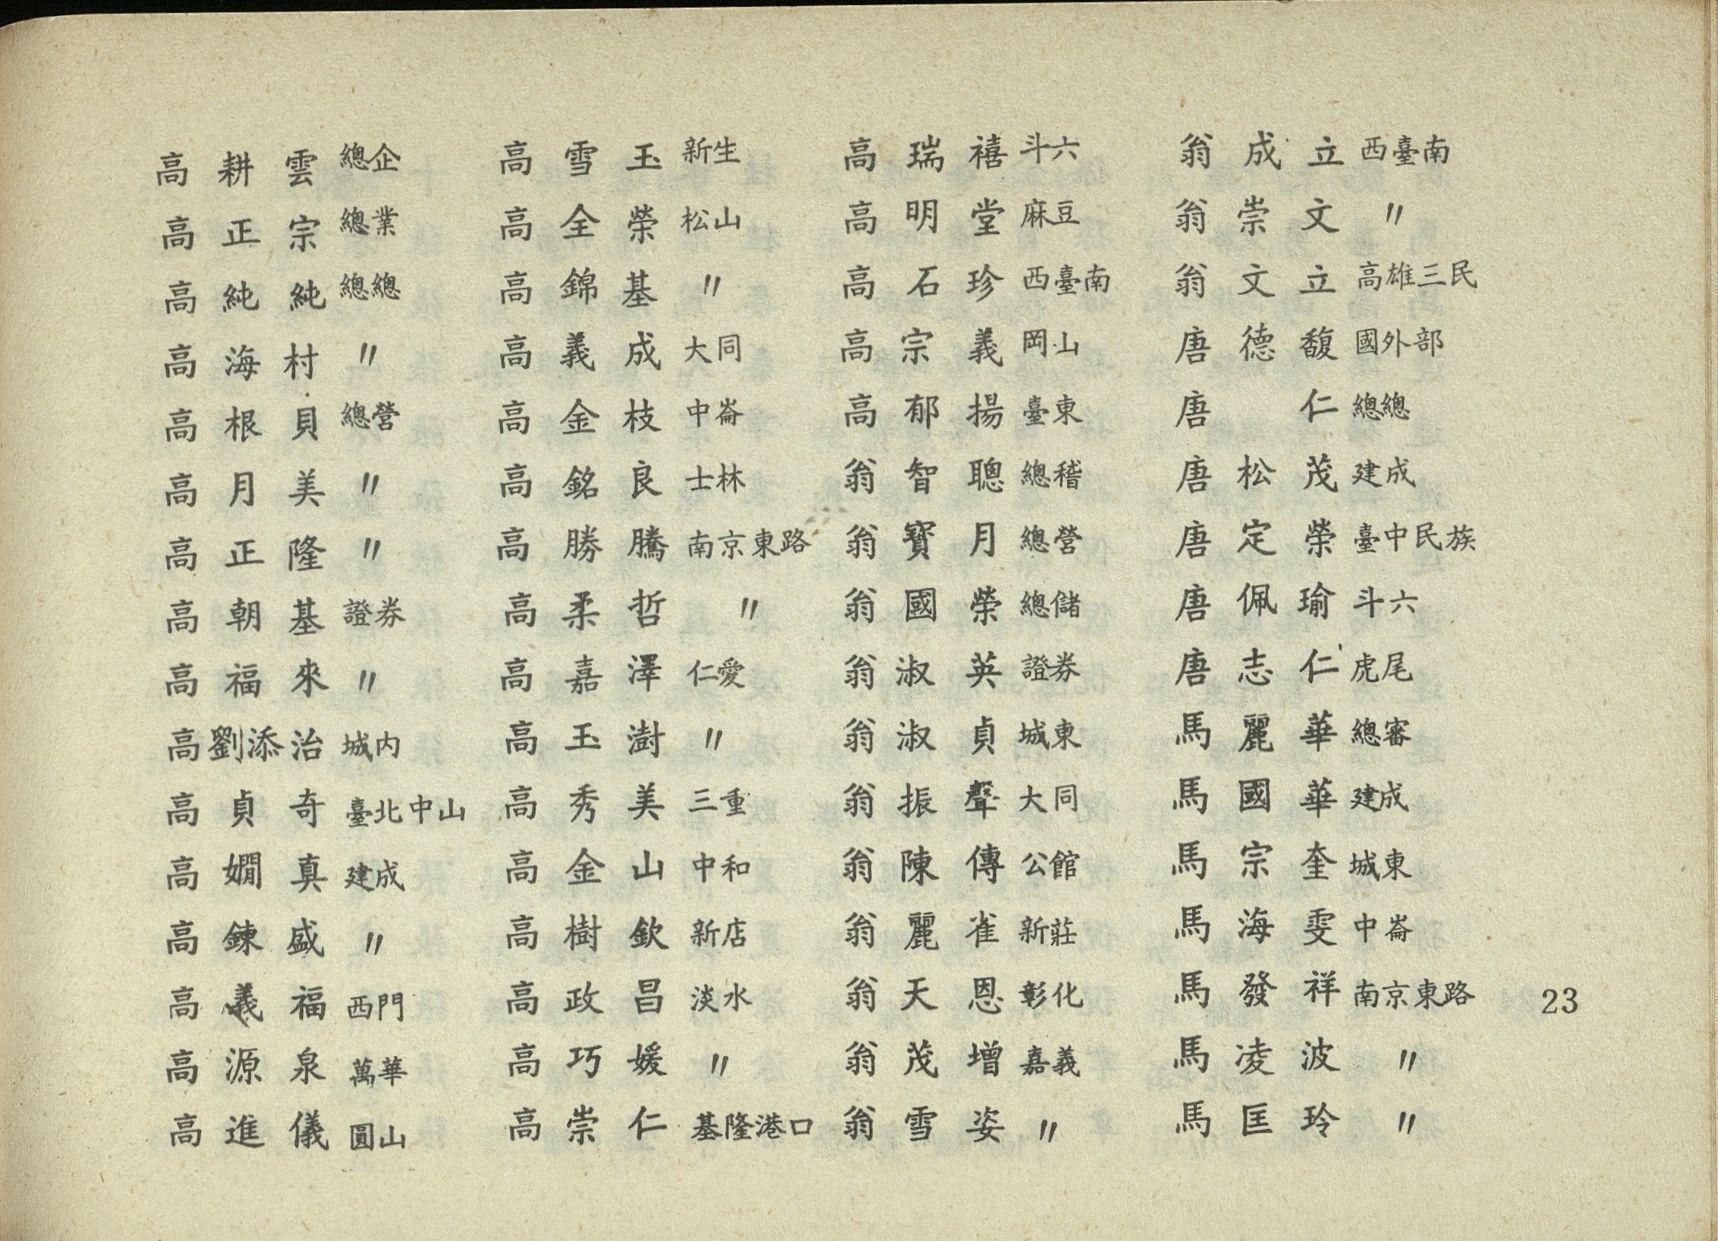 高耕雲 總企
高正宗 總業
高純純 總總
高海村 〃
高根貝 總營
高月美 〃
高正隆 〃
高朝基 證券
高福來 〃
高劉添治 城內
高貞奇 臺北中山
高嫺真 建成
高鍊盛 〃
高義福 西門
高源泉 萬華
高進儀 圓山
高雪玉 新生
高全榮 松山
高錦基 〃
高義成 大同
高金枝 中崙
高銘良 士林
高勝騰 南京東路
高柔哲 〃
高嘉澤 仁愛
高玉澍 〃
高秀美 三重
高金山 中和
高樹欽 新店
高政昌 淡水
高巧媛 〃
高崇仁 基隆港口
高瑞禧 斗六
高明堂 麻豆
高石珍 西臺南
高宗義 岡山
高郁揚 臺東
翁智聰 總稽
翁寶月 總營
翁國榮 總儲
翁淑英 證券
翁淑貞 城東
翁振聲 大同
翁陳傳 公館
翁麗雀 新莊
翁天恩 彰化
翁茂增 嘉義
翁雪姿 〃
翁成立 西臺南
翁崇文 〃
翁文立 高雄三民
唐德馥 國外部
唐仁 總總
唐松茂 建成
唐定榮 臺中民族
唐佩瑜 斗六
唐志仁 虎尾
馬麗華 總審
馬國華 建成
馬宗奎 城東
馬海雯 中崙
馬發祥 南京東路
馬凌波 〃
馬匡玲 〃
23